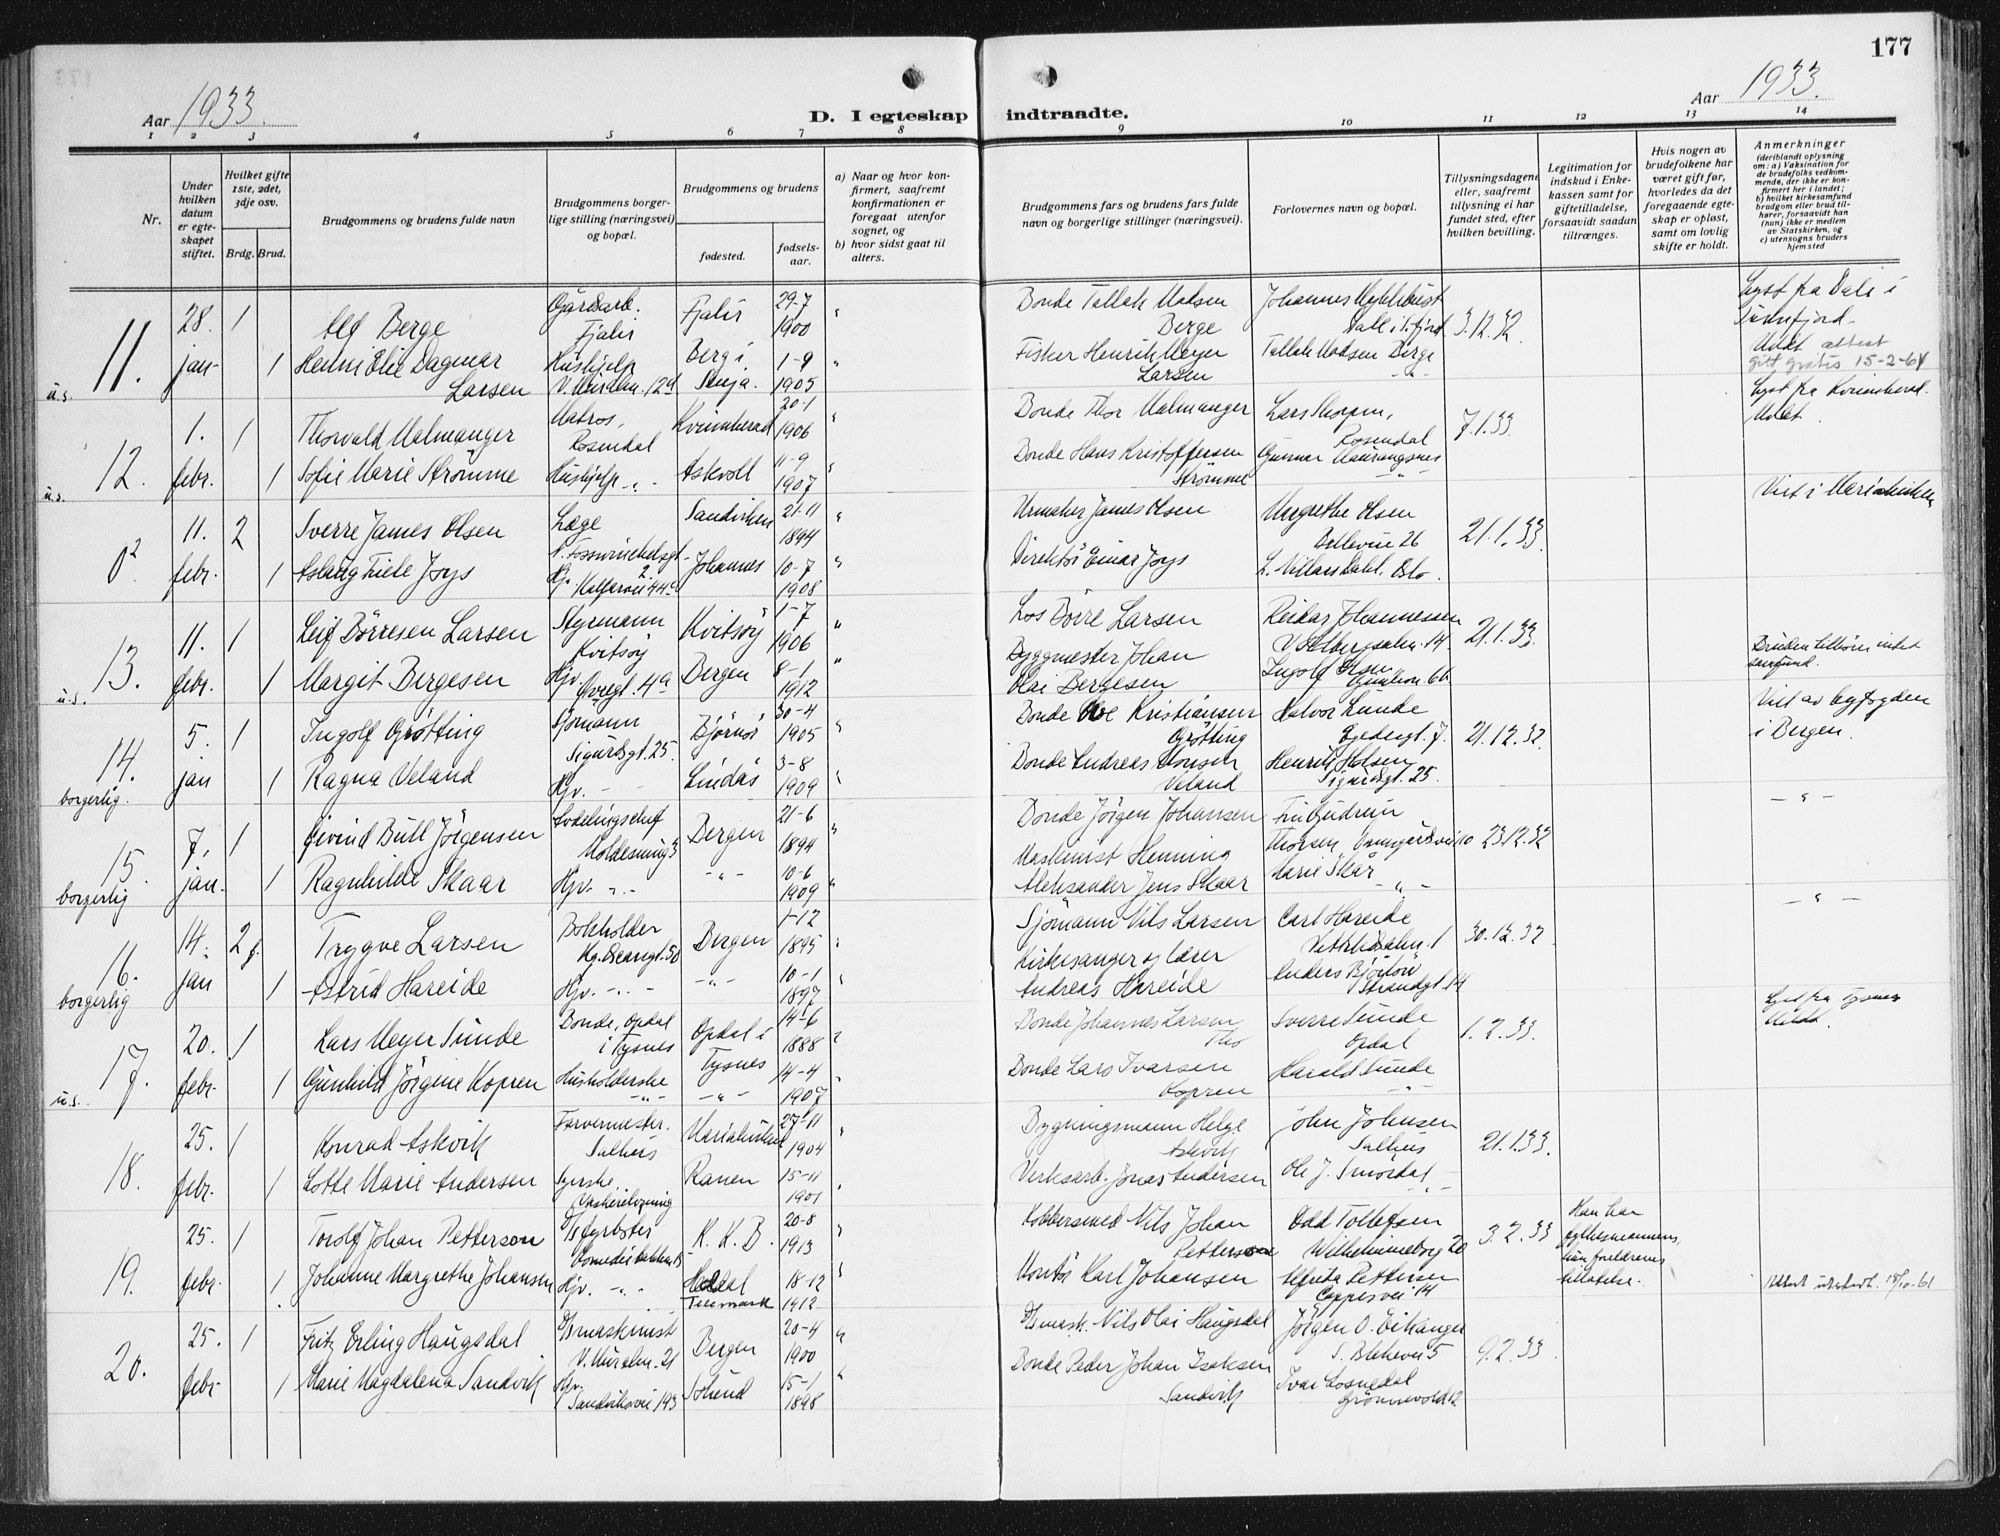 177
Aar 1933.
D. I egteskap indtraadte.
Aar 1933.
1 2 3 4 5 6 7 8 9 10 11 12 13 14
Nr.
Under hvilken datum er egteskapet stiftet.
Hvilket gifte 1ste, 2det, 3dje osv.
Brdg. Brud.
Brudgommens og brudens fulde navn
Brudgommens borgerlige stilling (næringsvei) og bopæl.
Brudgommens og brudens
fødested.
fødselsaar.
a) Naar og hvor konfirmert, saafremt konfirmationen er foregaat utenfor sognet, og
b) hvor sidst gaat til alters.
Brudgommens fars og brudens fars fulde navn og borgerlige stillinger (næringsvei).
Forlovernes navn og bopæl.
Tillysningsdagene eller, saafremt tillysning ei har fundet sted, efter hvilken bevilling.
Legitimation for indskud i Enkekassen samt for giftetilladelse, forsaavidt saadan tiltrænges.
Hvis nogen av brudefolkene har været gift før, hvorledes da det foregaaende egteskap er opløst, samt om lovlig skifte er holdt.
Anmerkninger
(deriblandt oplysning om: a) Vaksination for de brudefolks vedkommende, der ikke er konfirmert her i landet; b) hvilket kirkesamfund brudgom eller brud tilhører, forsaavidt han (hun) ikke er medlem av Statskirken, og c) utensogns bruders hjemsted
u.s. 11. 28. jan. 1
Alf Berge
Gårdsarb. Fjaler
Fjaler
29-7 1900
Bonde Tallak Madsen Berge
Johannes Myklebust Dale i S.fjord
3.12.32
Lyst fra Dale i Sunnfjord
1
Henni Elie Dagmar Larsen
Hushjelp
V. Muralm. 12a
Berg i Senja.
1-9 1905
Fisker Henrik Meyer Larsen
Tallak Madsen Berge
Gitt gratis 15-2-64
u.s. 12. 1. febr. 1
Thorvald Malmanger
Matros, Rosendal
Kvinnherad
20-1 1906
Bonde Thor Malmanger
Lars Skorpen, Rosendal
7.1.33.
Lyst fra Kvinnherad.
1
Sofie Marie Strømme
Hushjelp -"-
Askvoll
11-9 1907
Bonde Hans Kristoffersen Strømme
Gunnar
0² 11. febr. 2
Sverre James Olsen
Læge
Sandviken
21-11 1894
Urmaker James Olsen
Margrethe Olsen Bellevue 26
21.1.33.
Viet i Mariakirken
1
Aslaug Friele Joys
Hj. Kalfarvei 44a
Johannes
10-7 1908
Direktör Einar Joys
L. Villars Dahl, Oslo.
u.s. 13. 11. febr. 1
Leif Börresen Larsen
Styrmann Kvitsöy
Kvitsöy
1-7 1906
Los Börre Larsen
Reidar Johannessen
21.1.33.
Bruden tilhører intet samfund.
1
Margit Bergesen
Hjv. Øvregt. 4a
Bergen
8-1 1912
Byggmester Johan Olai Bergesen
Ingolf Olsen
borgerlig. 14. 5. jan 1
Ingolf Grötting
Sjömann Sigurdsgt. 25.
Björnör
30-4 1905
Bonde Ole Kristiansen Grötting
Halvor Lunde Egedesgt. 7.
21.12.32.
Viet av byfogden i Bergen.
1
Ragna Veland
Hjv. - -
Lindås
3-8 1909
Bonde Andreas Monsen Veland
Henrik Holsen Sigurdsgt. 25.
borgerlig 15. 7. jan. 1
Eivind Bull Jörgensen
Avdelingschef
Bergen
21-6 1894
Bonde Jörgen Johansen
Fru Gudrun Thorsen Damgårdsvei 10
23.12.32
- " -
1
Ragnhilde Skaar
Hjv. -"-
-"-
10-6 1909
Maskinist Henning Aleksander Jens Skaar
Marie Skår -"-
borgerlig 16. 14. jan 2 f.
Trygve Larsen
Bokholder Kg. Oscarsgt. 50
Bergen
1-12 1895
Sjömann Nils Larsen
Carl Hareide Vetrlidsalm. 1
30.12.32
- " -
1
Astrid Hareide
Hjv. -"-
-"-
10-1 1897
Kirkesanger og lærer Andreas Hareide
Anders Björlöw Strandgt. 14
u.s. 17. 20. febr. 1
Lars Meyer Sunde
Bonde, Opdal i Tysnes
Opdal i Tysnes
14-6 1888
Bonde Johannes Larsen
Sverre Sunde Opdal
1.2.33.
Lyst fra Tysnes
1
Gunhild Jörgine Kopren
Husholderske -"-
-"-
14-4 1907
Bonde Lars Ivarsen Kopren
Harald Sunde -"-
18. 25. febr. 1
Konrad Askvik
Farvermester. Salhus
Mariakirken
27-11 1904
Bygningsmann Helge Askvik
John Johnsen Salhus
21.1.33.
1
Lotte Marie Andersen
Syerske,
Ranen
15-11 1901
Verksarb. Jonas Andersen
Ole J. Smördal -"-
19. 25. febr. 1
Torolf Johan Petterson
D/S fyrböter
K. K. B.
20-8 1913
Kobbersmed Nils Johan Petterson
Odd Tollefsen Wilhelmineborg 20
3.2.33
Han har fylkesmannens, hun foreldrenes tillatelse.
1
Johanne Margrethe Johansen
Hjv. -"-
Heddal Telemark
18-12 1912
Kontör Karl Johansen
Alfrida Pettersen Coppesvei 14
Attest utstedt. 18/10-61
20. 25. febr. 1
Fritz Erling Haugsdal
D/S maskinist V. Muralm. 21
Bergen
20-4 1900
D/S mask. Nils Olai Haugsdal
Jörgen O. Eikanger S. Blekevei 5
9.2.33
1
Marie Magdalena Sandvik
Hjv. Sandviksvei 193
Solund
15-1 1898
Bonde Peder Johan Isaksen Sandvik
Ivar Losnedal Grönnevold 12